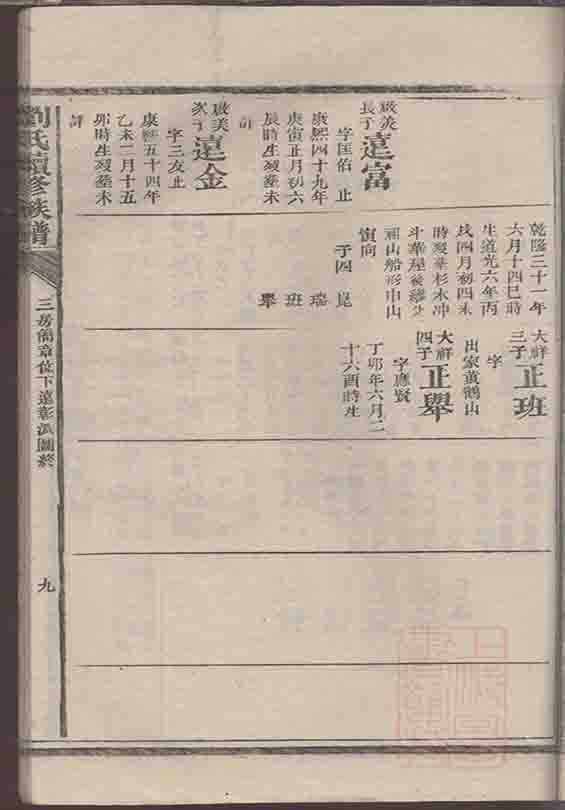 啟美
長子
遠富
字匡佑 止
康熙四十九年
庚寅正月初六
辰時生歿塟未
詳
啟美
次子
遠金
字三友止
康熙五十四年
乙未二月十五
卯時生歿塟未
詳
乾隆三十一年
六月十四巳時
生道光六年丙
戌四月初四未
時歿塟杉木冲
斗華屋後
面山船形申山
寅向
子四 崑
瑞
班
舉
大祥
三子
正班
字
出家黃鶴山
大祥
四子
正舉
字應賢
丁卯年六月二
十六酉時生
劉氏續修族譜
三房簡章位下遠彰派圖終
九